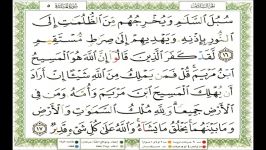 سُبُلَ ٱلسَّلَٰمِ وَيُخْرِجُهُم مِّنَ ٱلظُّلُمَٰتِ إِلَى
ٱلنُّورِ بِإِذْنِهِۦ وَيَهْدِيهِمْ إِلَىٰ صِرَٰطٍ مُّسْتَقِيمٍ
١٦ لَّقَدْ كَفَرَ ٱلَّذِينَ قَالُوٓا۟ إِنَّ ٱللَّهَ هُوَ ٱلْمَسِيحُ
ٱبْنُ مَرْيَمَ قُلْ فَمَن يَمْلِكُ مِنَ ٱللَّهِ شَيْـًٔا إِنْ أَرَادَ
أَن يُهْلِكَ ٱلْمَسِيحَ ٱبْنَ مَرْيَمَ وَأُمَّهُۥ وَمَن فِى
ٱلْأَرْضِ جَمِيعًا وَلِلَّهِ مُلْكُ ٱلسَّمَٰوَٰتِ وَٱلْأَرْضِ
وَمَا بَيْنَهُمَا يَخْلُقُ مَا يَشَآءُ وَٱللَّهُ عَلَىٰ كُلِّ شَىْءٍ قَدِيرٌ ١٧